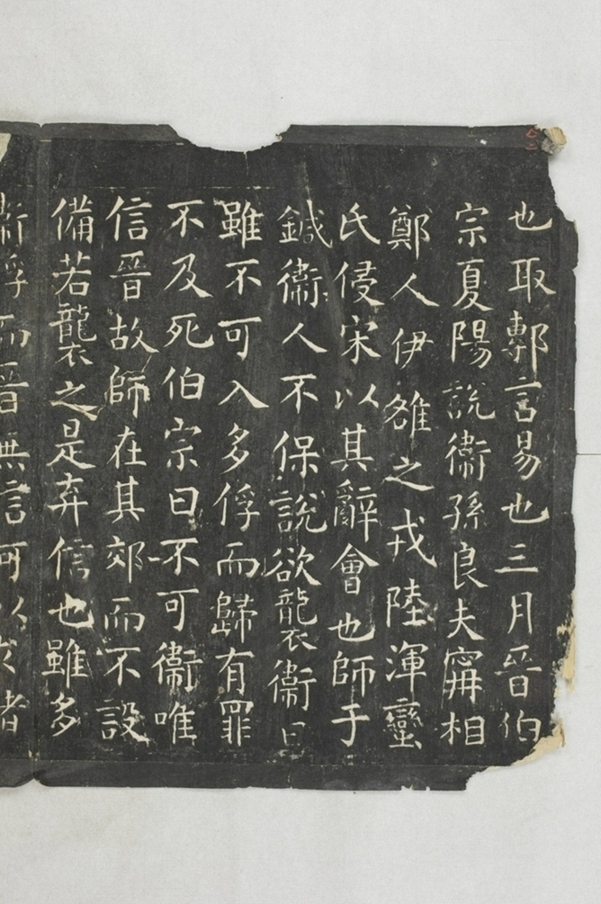 也取鄟言易也三月晉伯
宗夏陽說衞孫良夫甯相
鄭人伊雒之戎陸渾蠻
氏侵宋以其辭會也師于
鍼衞人不保說欲襲衞曰
雖不可入多俘而歸有罪
不及死伯宗曰不可衞唯
信晉故師在其郊而不設
備若襲之是弃信也雖多
衞俘而晉無信何以求諸